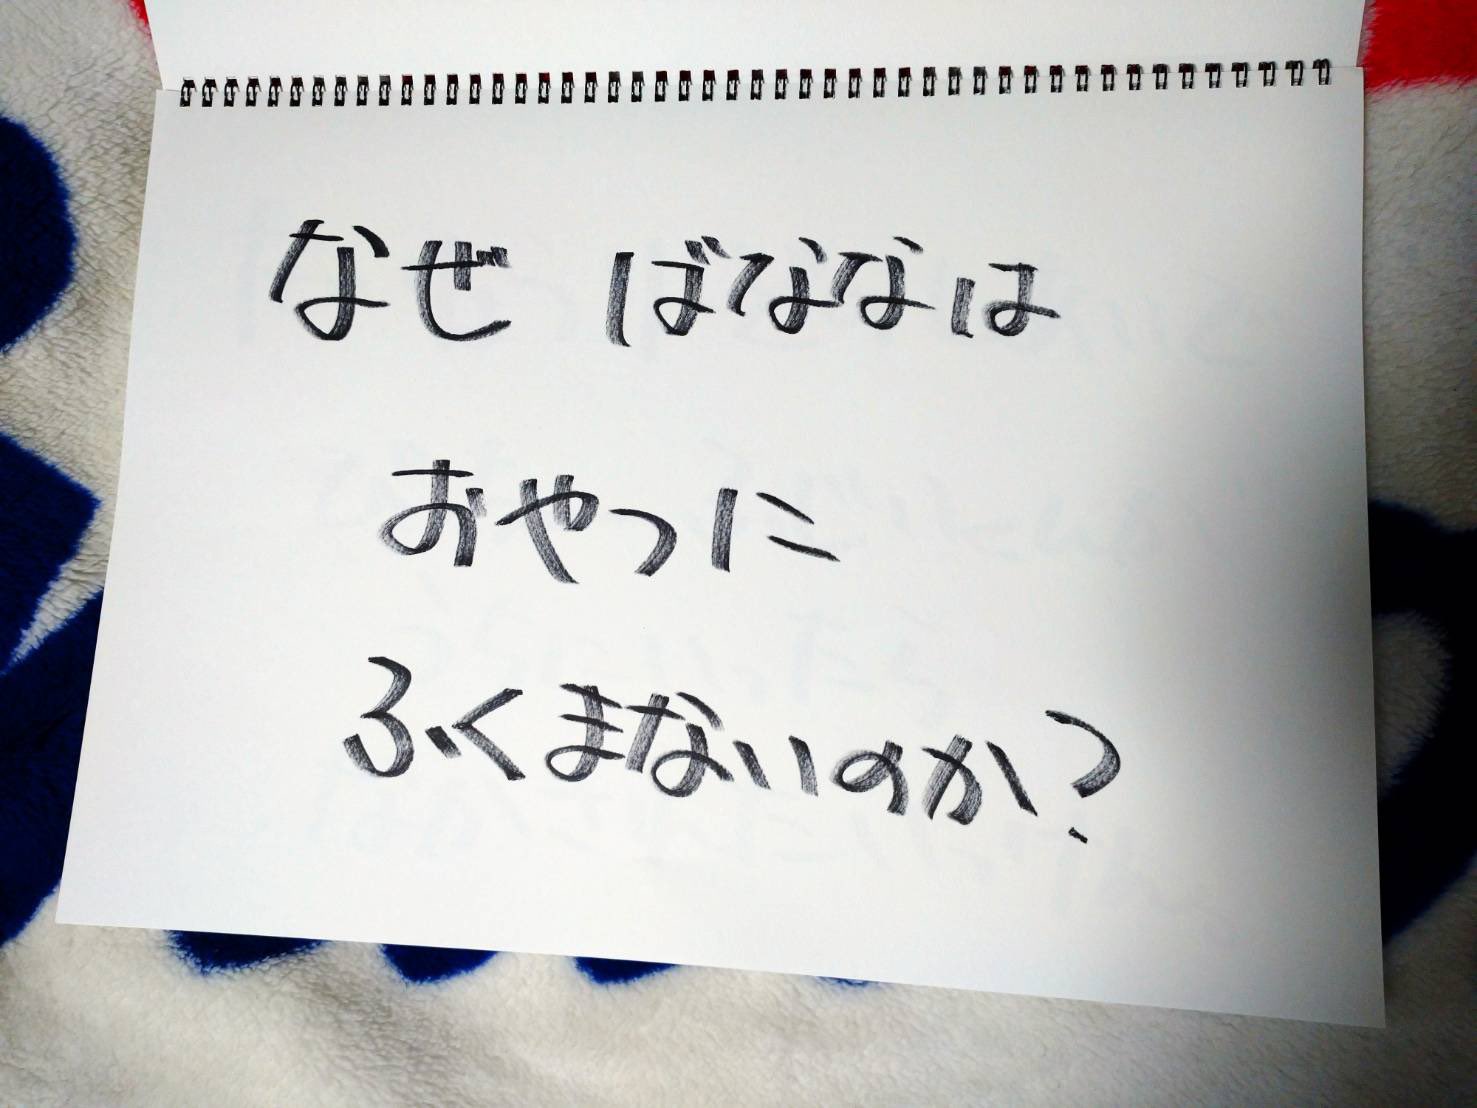 なぜ ばななは
おやつに
ふくまないのか?